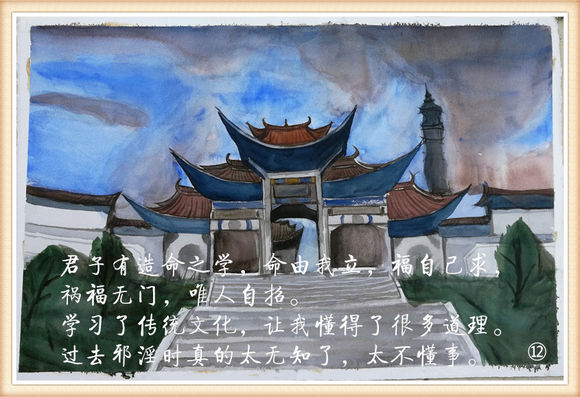 君子有造命之学，命由我立，福自己求，
祸福无门，唯人自招。
学习了传统文化，让我懂得了很多道理。
过去邪淫时真的太无知了，太不懂事。 ⑫